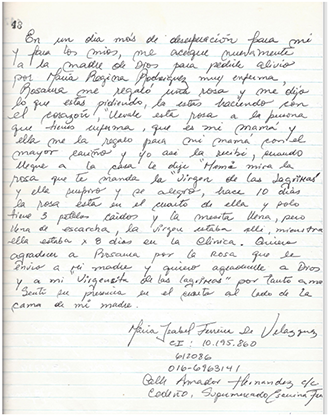 18
En un dia más de desesperación para mi
y para los mios, me acerque nuevamente
a la madre de Dios para pedirle alivio
por Maria Regina Rodriguez muy enferma,
Rosaura me regalo una rosa y me dijo
lo que estas pidiendo, lo estas haciendo con
el corazón, "llevale esta rosa a la persona
que tienes enferma, que es mi mamá" y
ella me la regalo para mi mamá con el
mayor cariño y yo asi la recibi, cuando
llegue a la casa le dije "Mamá mira la
rosa que te manda la Virgen de las Lagrimas"
y ella suspiro y se alegro, hace 10 dias
la rosa esta en el cuarto de ella y solo
tiene 3 petalos caidos y la mesita llena, pero
llena de escarcha, la virgen estaba alli, mientras
ella estaba x 8 dias en la Clinica. Quiero
agradecer a Rosaura por la rosa que se
envio a mi madre y quiero agradecerle a Dios
y a mi Virgencita de las lagrimas" por tanto amor
"Senti su presencia en el cuarto al lado de la
cama de mi madre.
Maria Isabel Ferreira de Velazquez
CI: 10.195.860
612086
016-6963141
Calle Amador Hernandez c/c
Cedeño, Supermercado